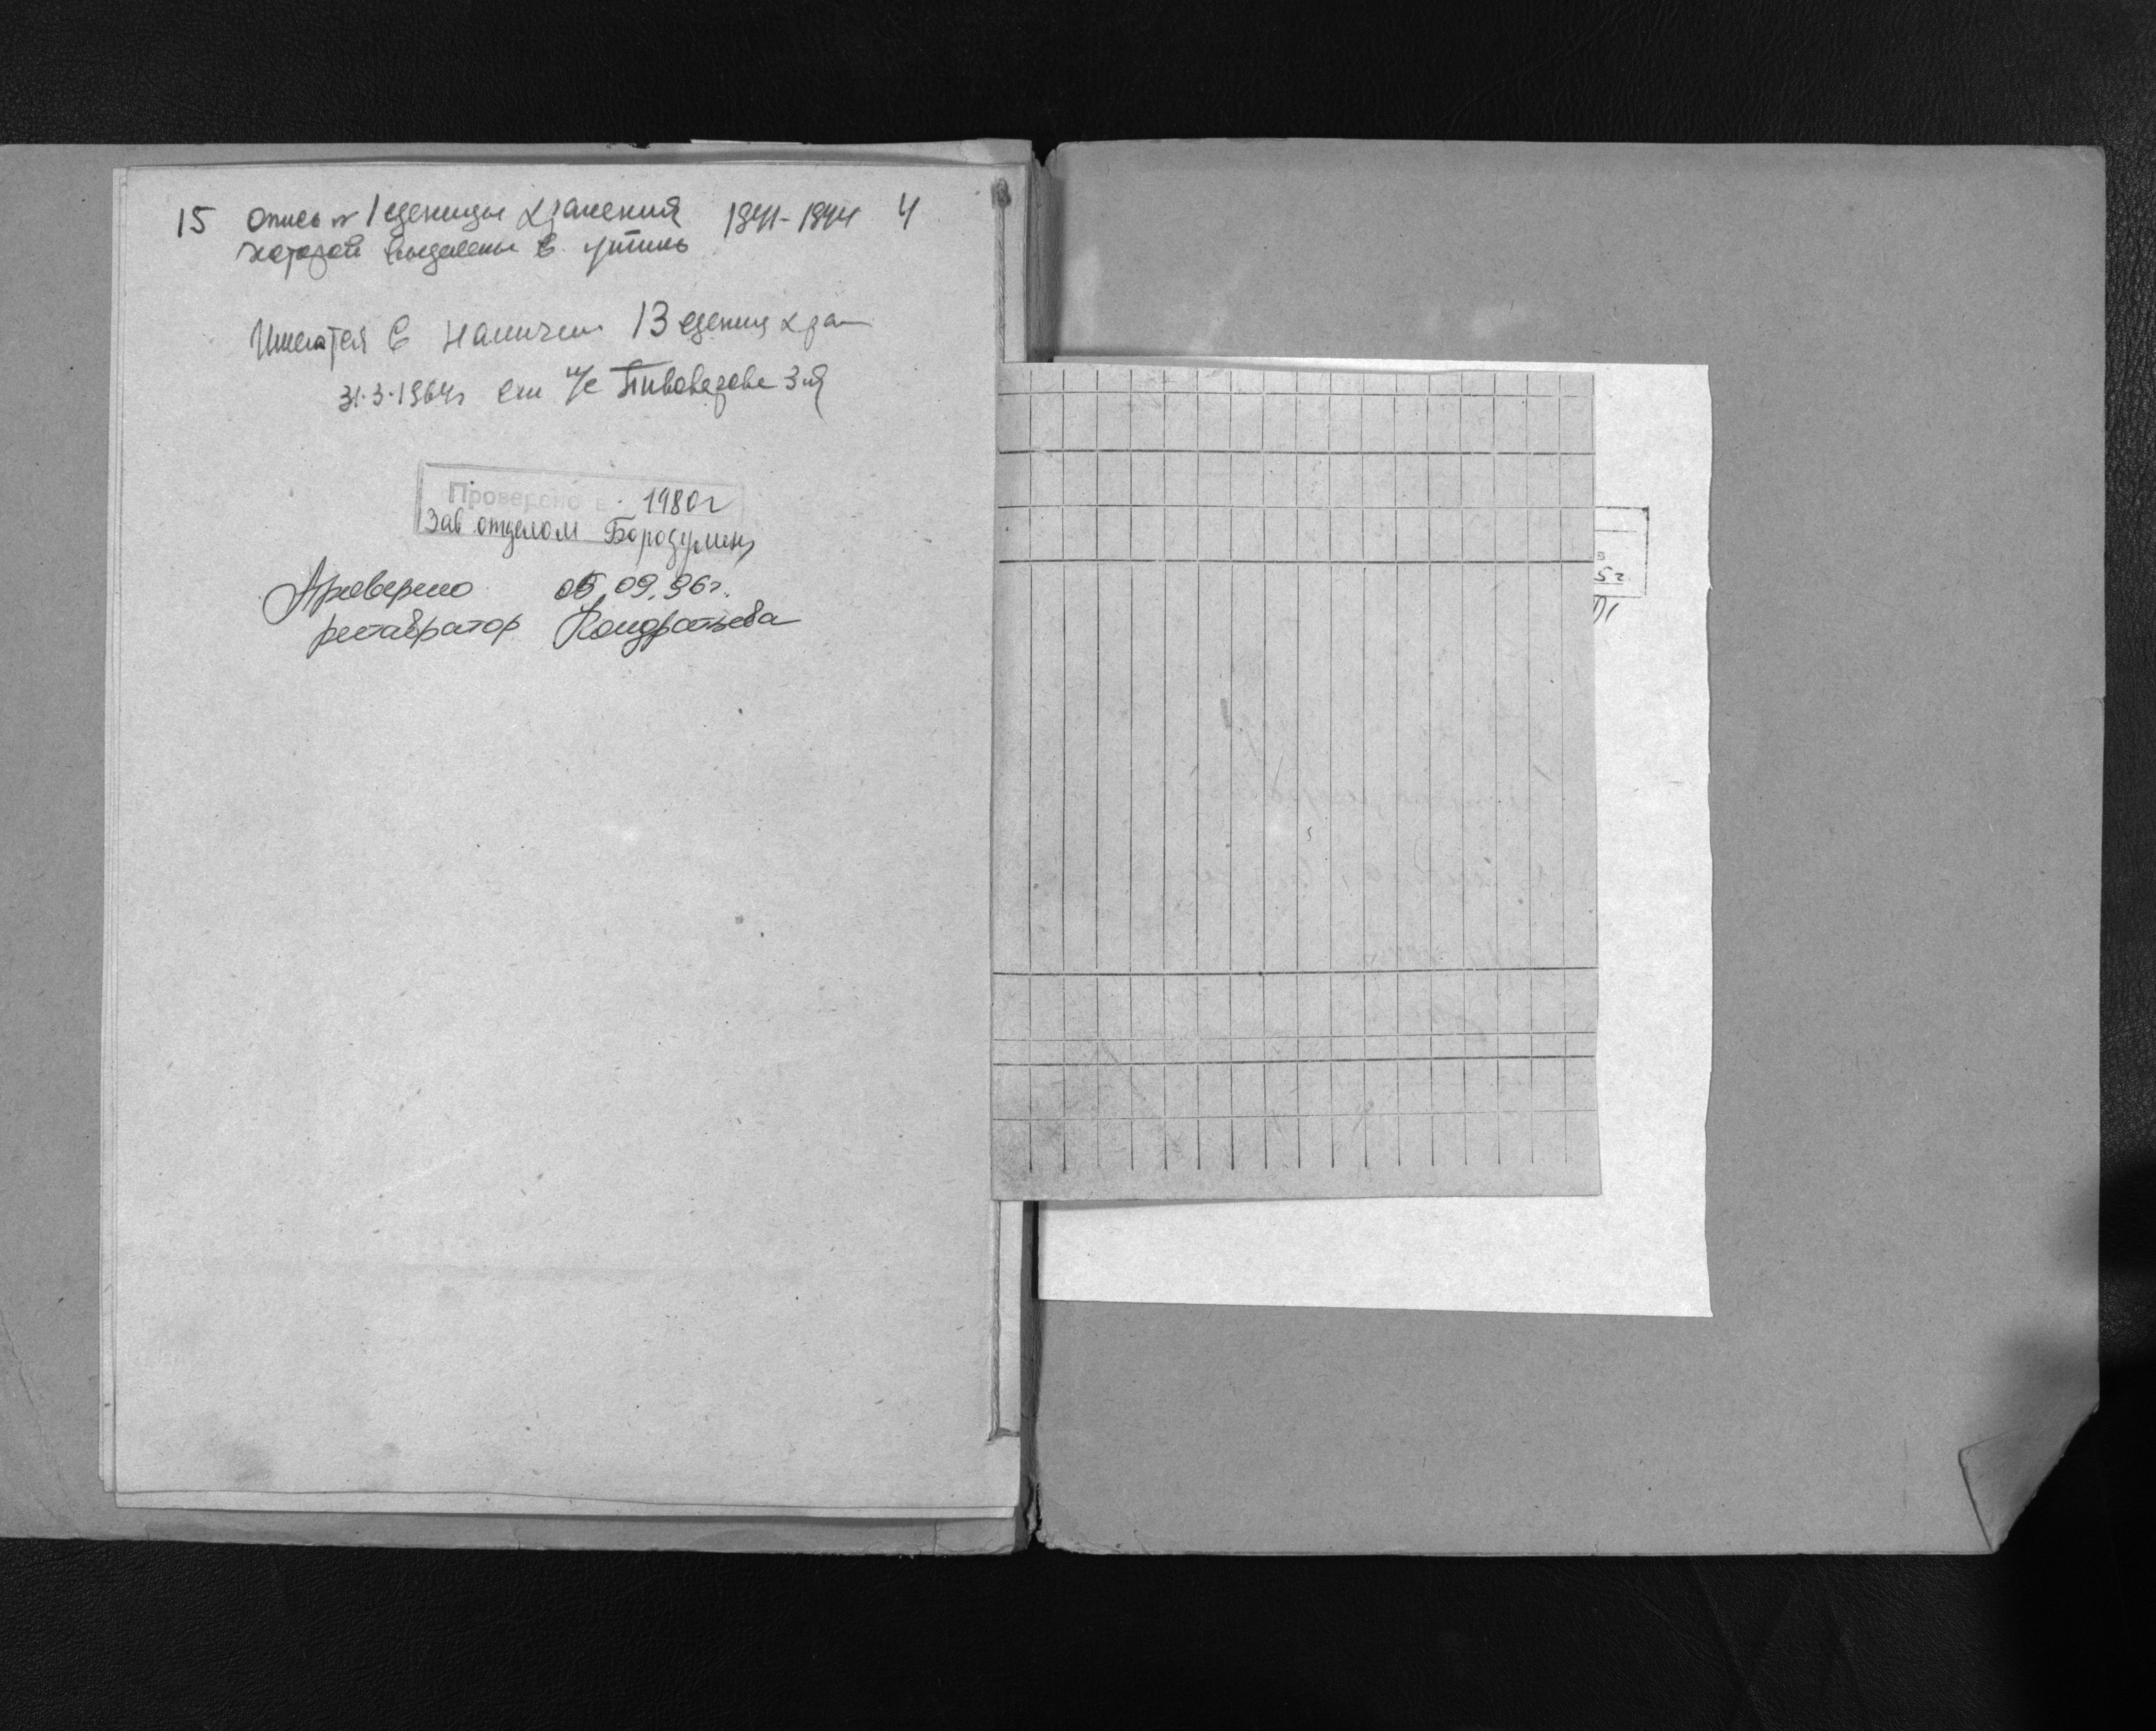 15 Опись № 1 еденицы хранения 1941-1944 4
которой выделены в утиль
Имеются в наличии 13 едениц хран
31.3.1964г. н/с Пивоварова
Проверено в 1980г
Зав отделом Бородулина
Проверено 05.09.96г.
реставратор Кондратьева
в
5 г.